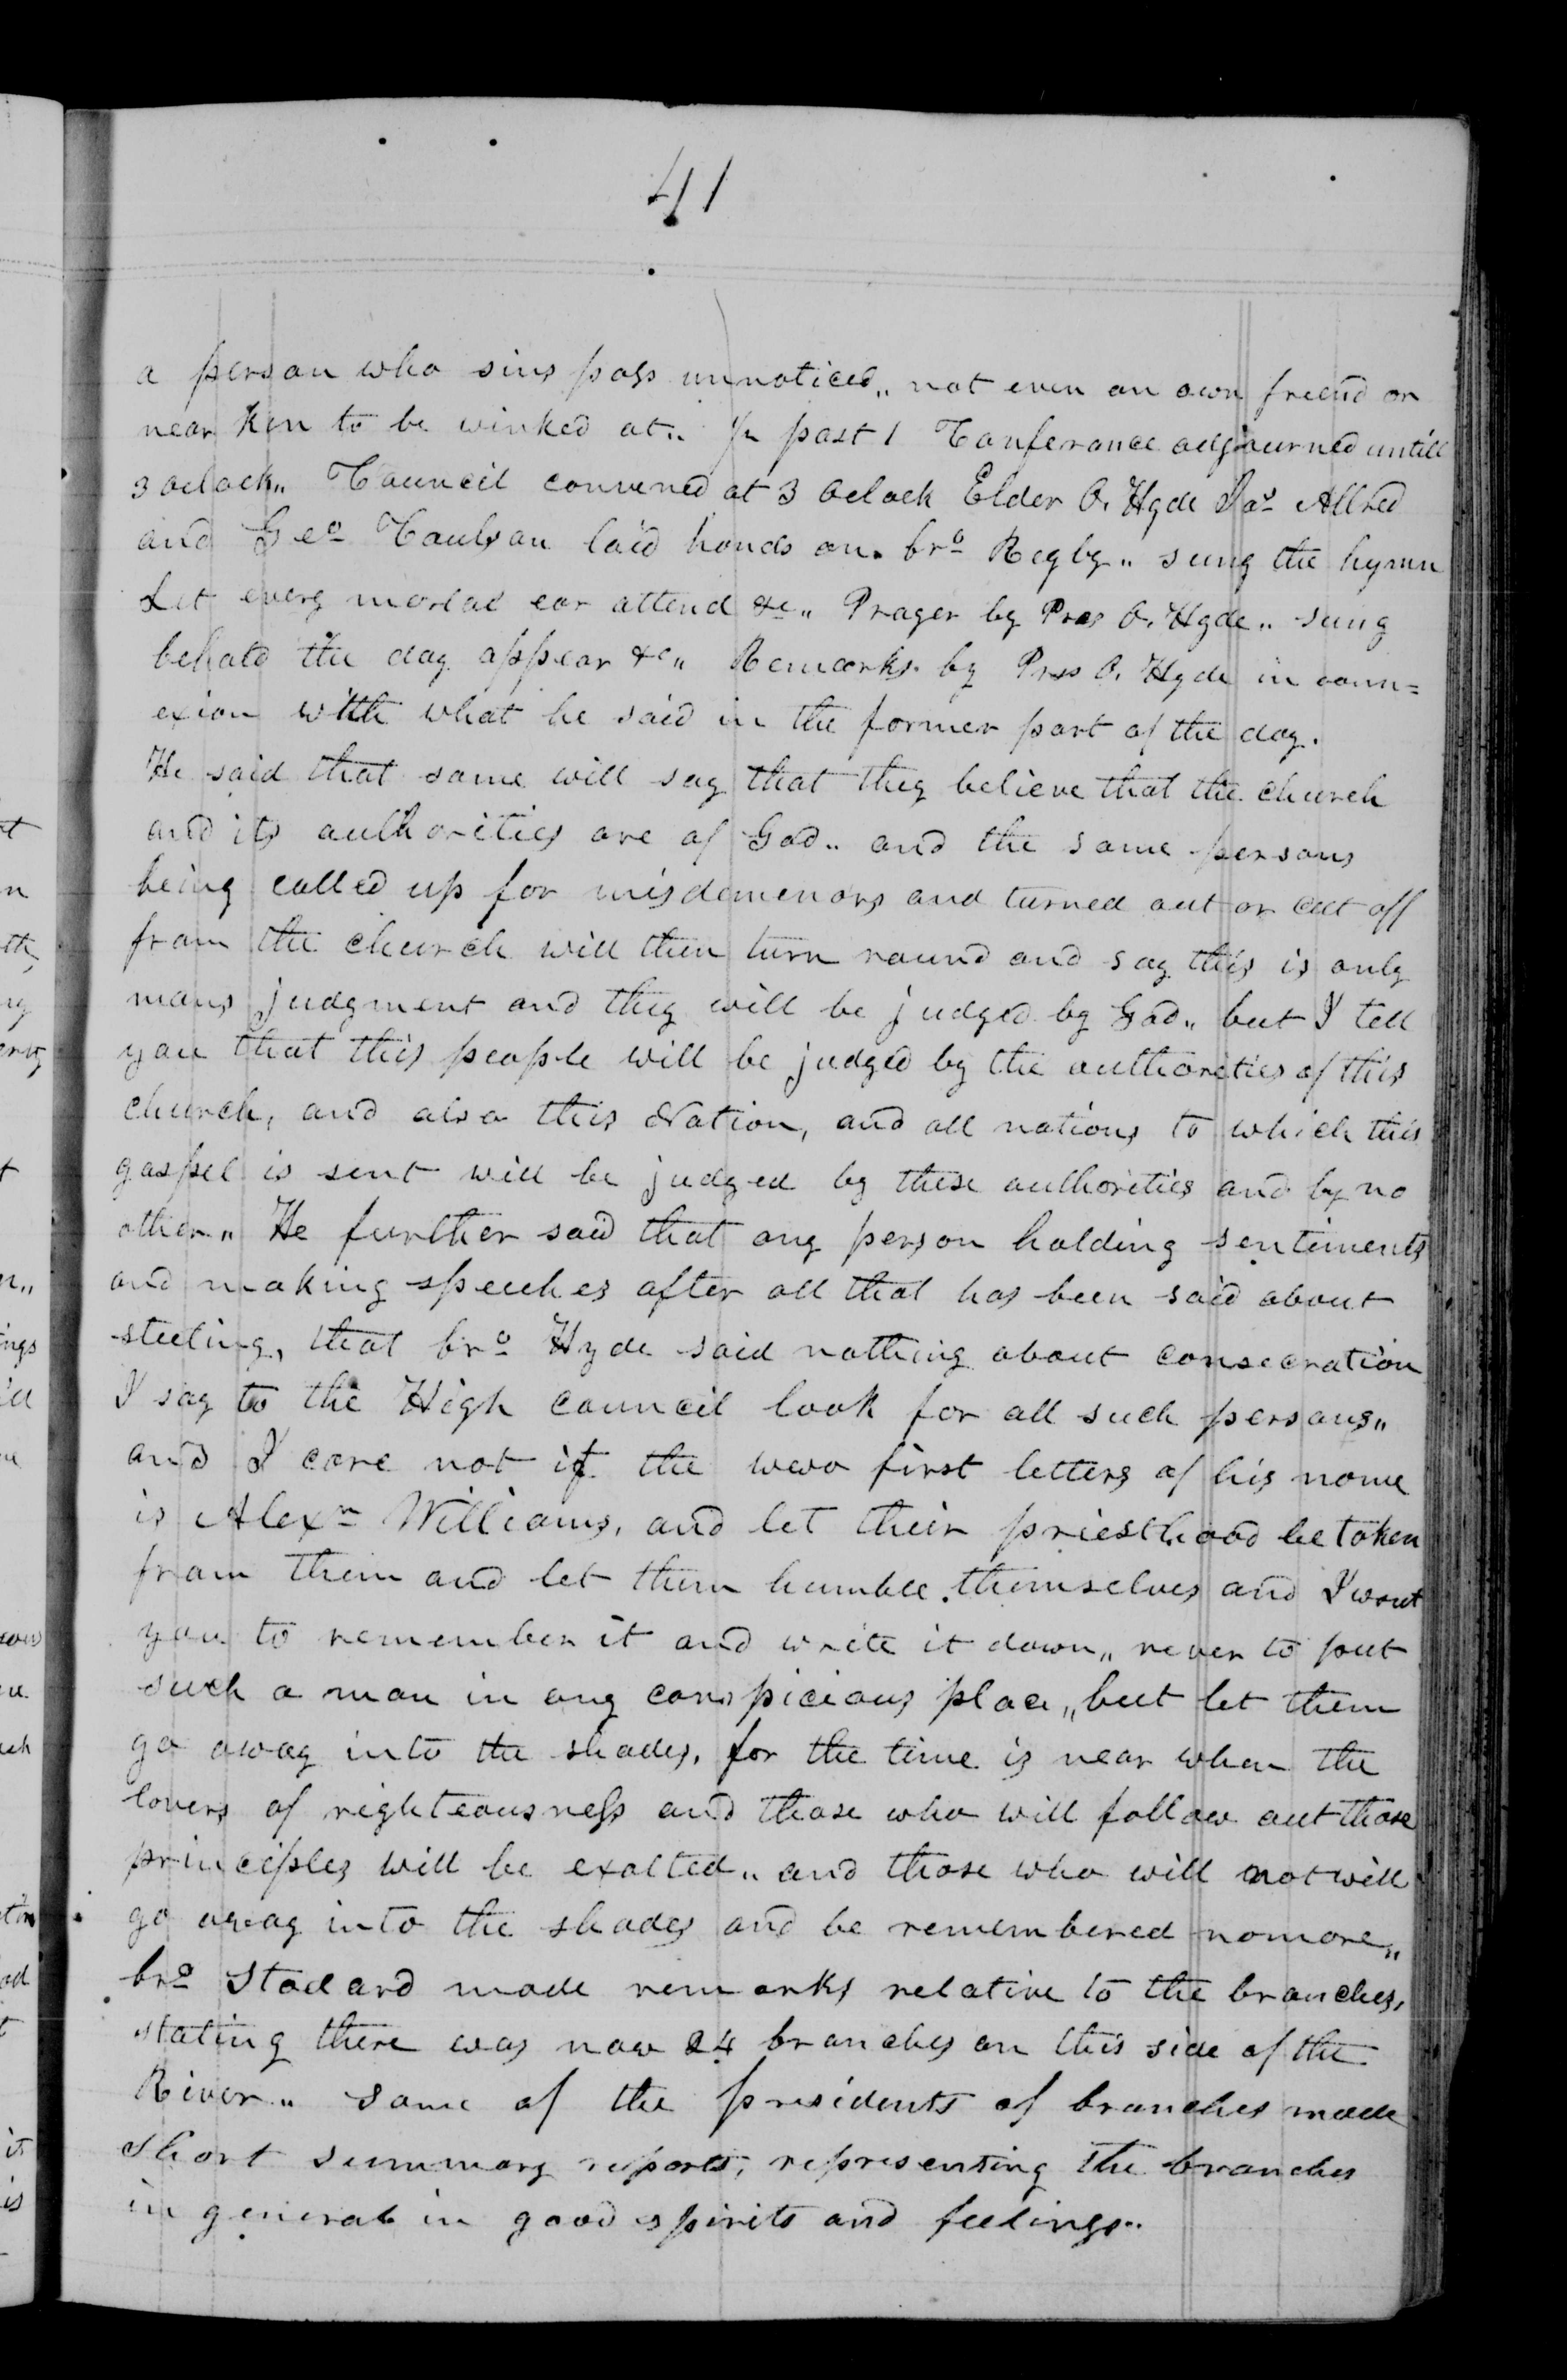 41
a person who sins pass unnoticed,, not even an own friend or
near kin to be winked at,, ½ past 1 Conferance adjourned untill
3 oclock,, Council convened at 3 oclock Elder O. Hyde Jas Allred
and Geo Coulson laid hands on. bro Rigby,, sung the hymn
Let every mortal ear attend &c,, Prayer by Pres O. Hyde,, sung
behold the day appear &c,, Remarks by Pres O. Hyde in conn=
exion with what he said in the former part of the day.
He said that some will say that they believe that the church
and its authorities are of God,, and the same persons
being called up for misdemenors and turned out or cut off
from the church will then turn round and say this is only
mans judgment and they will be judged by God,, but I tell
you that this people will be judged by the authorities of this
church, and also this Nation, and all nations to which this
gospel is sent will be judged by these authorities and by no
other,, He further said that any person holding sentiments
and making speeches after all that has been said about
steeling, that bro Hyde said nothing about consecration
I say to the High council look for all such persons,,
and I care not if the first letters of his name
is Alexr Williams, and let their priesthood be taken
from them and let them humble themselves and I want
you to remember it and write it down,, never to put
such a man in any conspicious place,, but let them
go away into the shades, for the time is near when the
lovers of righteousness and those who will follow out those
principles will be exalted,, and those who will not will
go away into the shades and be remembered nomore,,
bro Stodard made remarks relative to the branches,
stating there was now 24 branches on this side of the
River,, some of the presidents of branches made
short summary reports, representing the branches
in general in good spirits and feelings,,